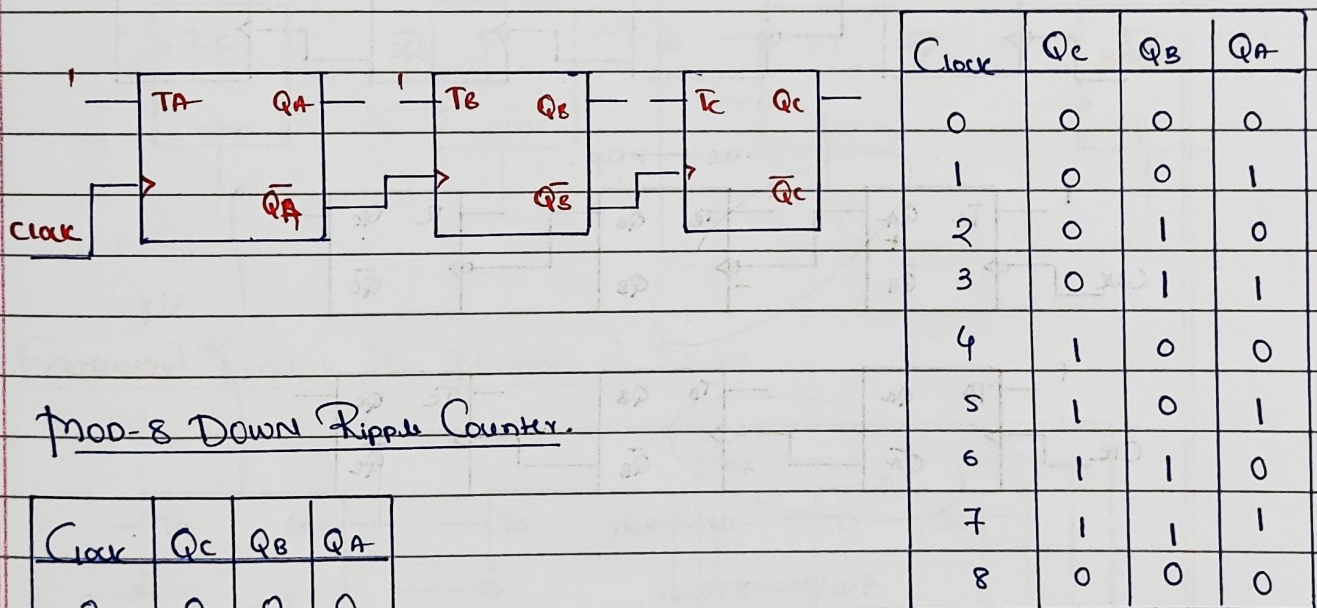 1 TA QA 1 TB QB TC QC
Q̅A̅ Q̅B̅ Q̅C̅
Clock
Clock QC QB QA
0 0 0 0
1 0 0 1
2 0 1 0
3 0 1 1
4 1 0 0
5 1 0 1
6 1 1 0
7 1 1 1
8 0 0 0
MOD-8 DOWN Ripple Counter.
Clock QC QB QA
0 0 0 0